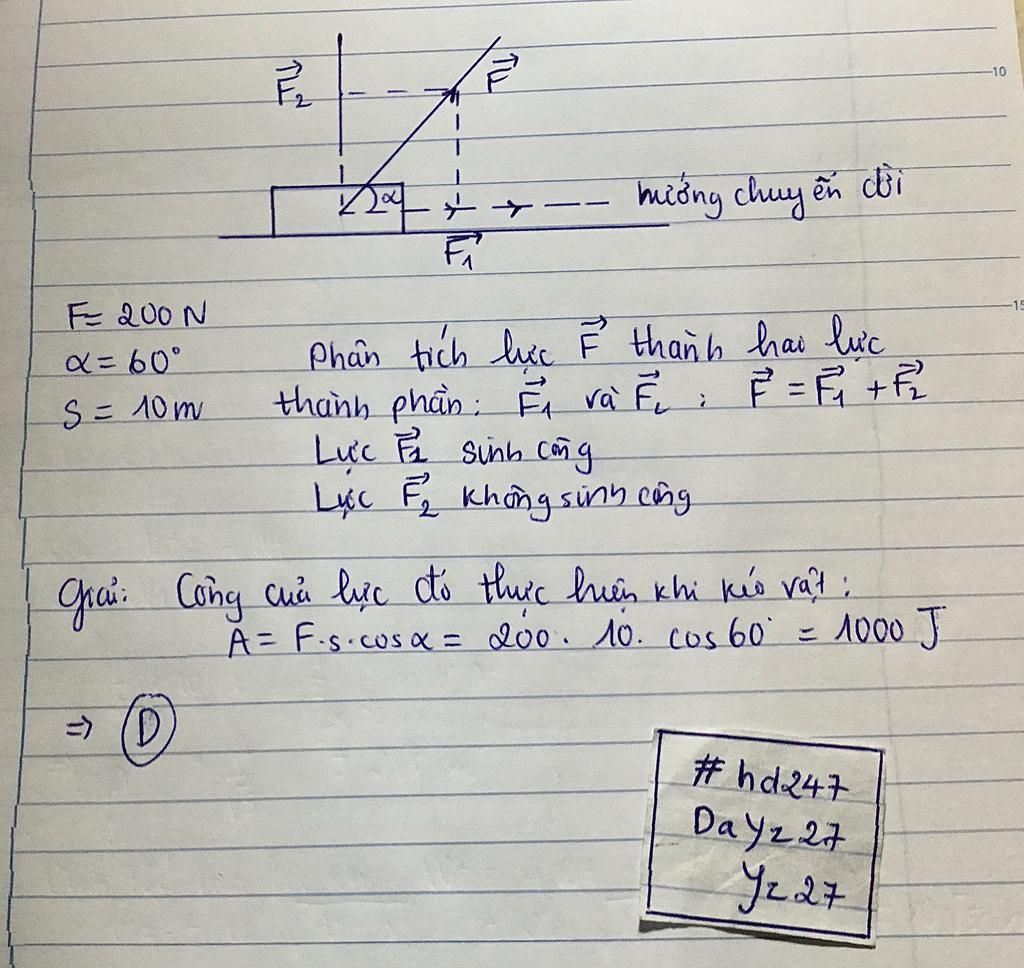 F⃗₂
F⃗
α
hướng chuyển dời
F⃗₁
10
15
F = 200 N
α = 60°
S = 10 m
Phân tích lực F⃗ thành hai lực
thành phần: F⃗₁ và F⃗₂ ; F⃗ = F⃗₁ + F⃗₂
Lực F⃗₁ sinh công
Lực F⃗₂ không sinh công
Giải: Công của lực đó thực hiện khi kéo vật:
A = F.s.cosα = 200 . 10. cos60° = 1000 J
⇒ D
# hd247
DaYz27
Yz27